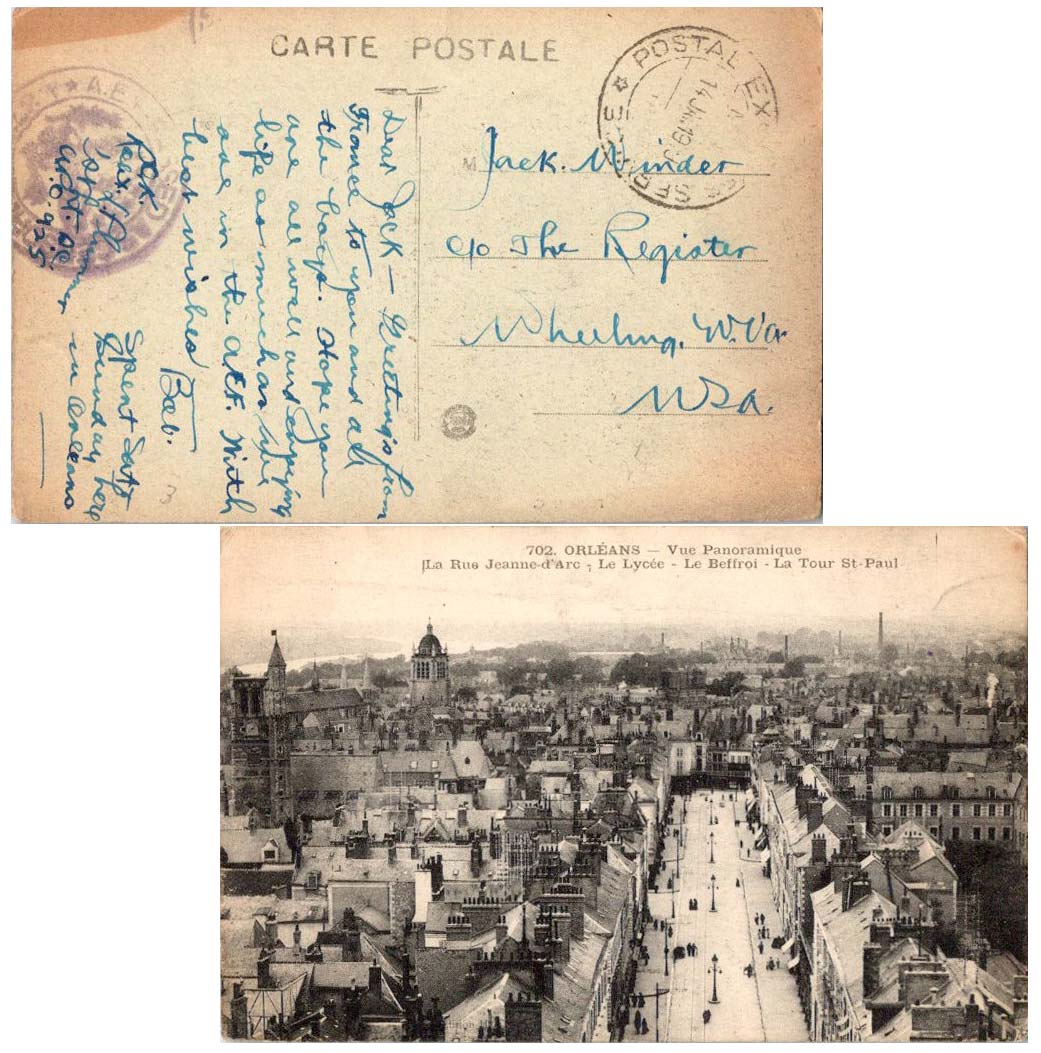 CARTE POSTALE
POSTAL EX
14 JA. 19
SER
A.E.F
Jack. Minder
c/o The Register
Wheeling. W. Va.
USA.
Dear Jack — Greetings from
France to you and all
the boys. Hope you
are all well and enjoying
life as much as we
are in the AEF. With
best wishes Bab.
Spent Sat &
Sunday here
in Orleans
A.P.O. 925
3
702. ORLÉANS — Vue Panoramique
La Rue Jeanne-d'Arc - Le Lycée - Le Beffroi - La Tour St-Paul